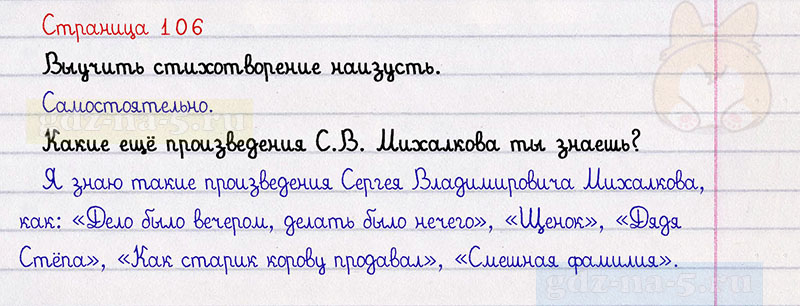 Страница 106
Выучить стихотворение наизусть.
Самостоятельно.
gdz-na-5.ru
Какие ещё произведения С.В. Михалкова ты знаешь?
Я знаю такие произведения Сергея Владимировича Михалкова,
как: «Дело было вечером, делать было нечего», «Щенок», «Дядя
Стёпа», «Как старик корову продавал», «Смешная фамилия».
gdz-na-5.ru